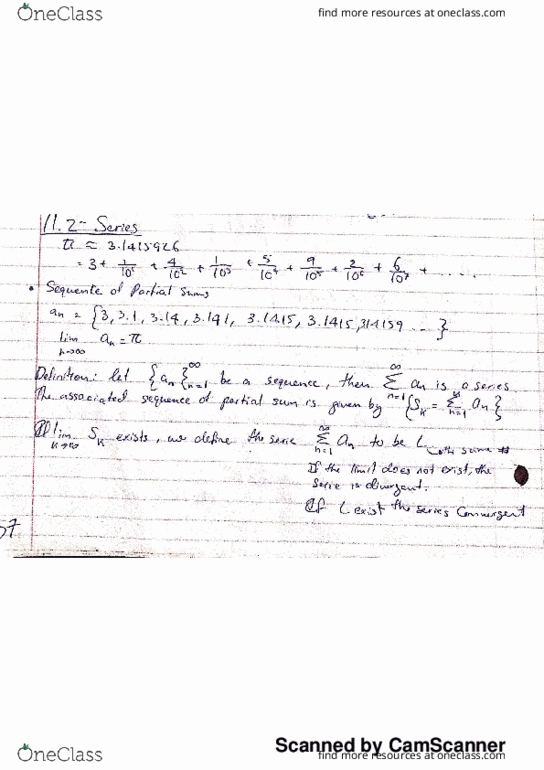 OneClass
find more resources at oneclass.com
11.2- Series
π ≈ 3.1415926
= 3 + 1/10¹ + 4/10² + 1/10³ + 5/10⁴ + 9/10⁵ + 2/10⁶ + 6/10⁷ + .....
• Sequente of Partial sums
an = {3, 3.1, 3.14, 3.141, 3.1415, 3.1415, 314159 ... }
lim n→∞ an = π
Definition: let {an}∞n=1 be a sequence, then ∞Σn=1 an is a series
The associated sequence of partial sum is given by {Sk = Σn=1 an}
If lim k→∞ Sk exists, we define the serie ∞Σn=1 an to be L the sum
If the limit does not exist, the
Serie is divergent.
If L exist the series Convergent
07
Scanned by CamScanner
OneClass
find more resources at oneclass.com